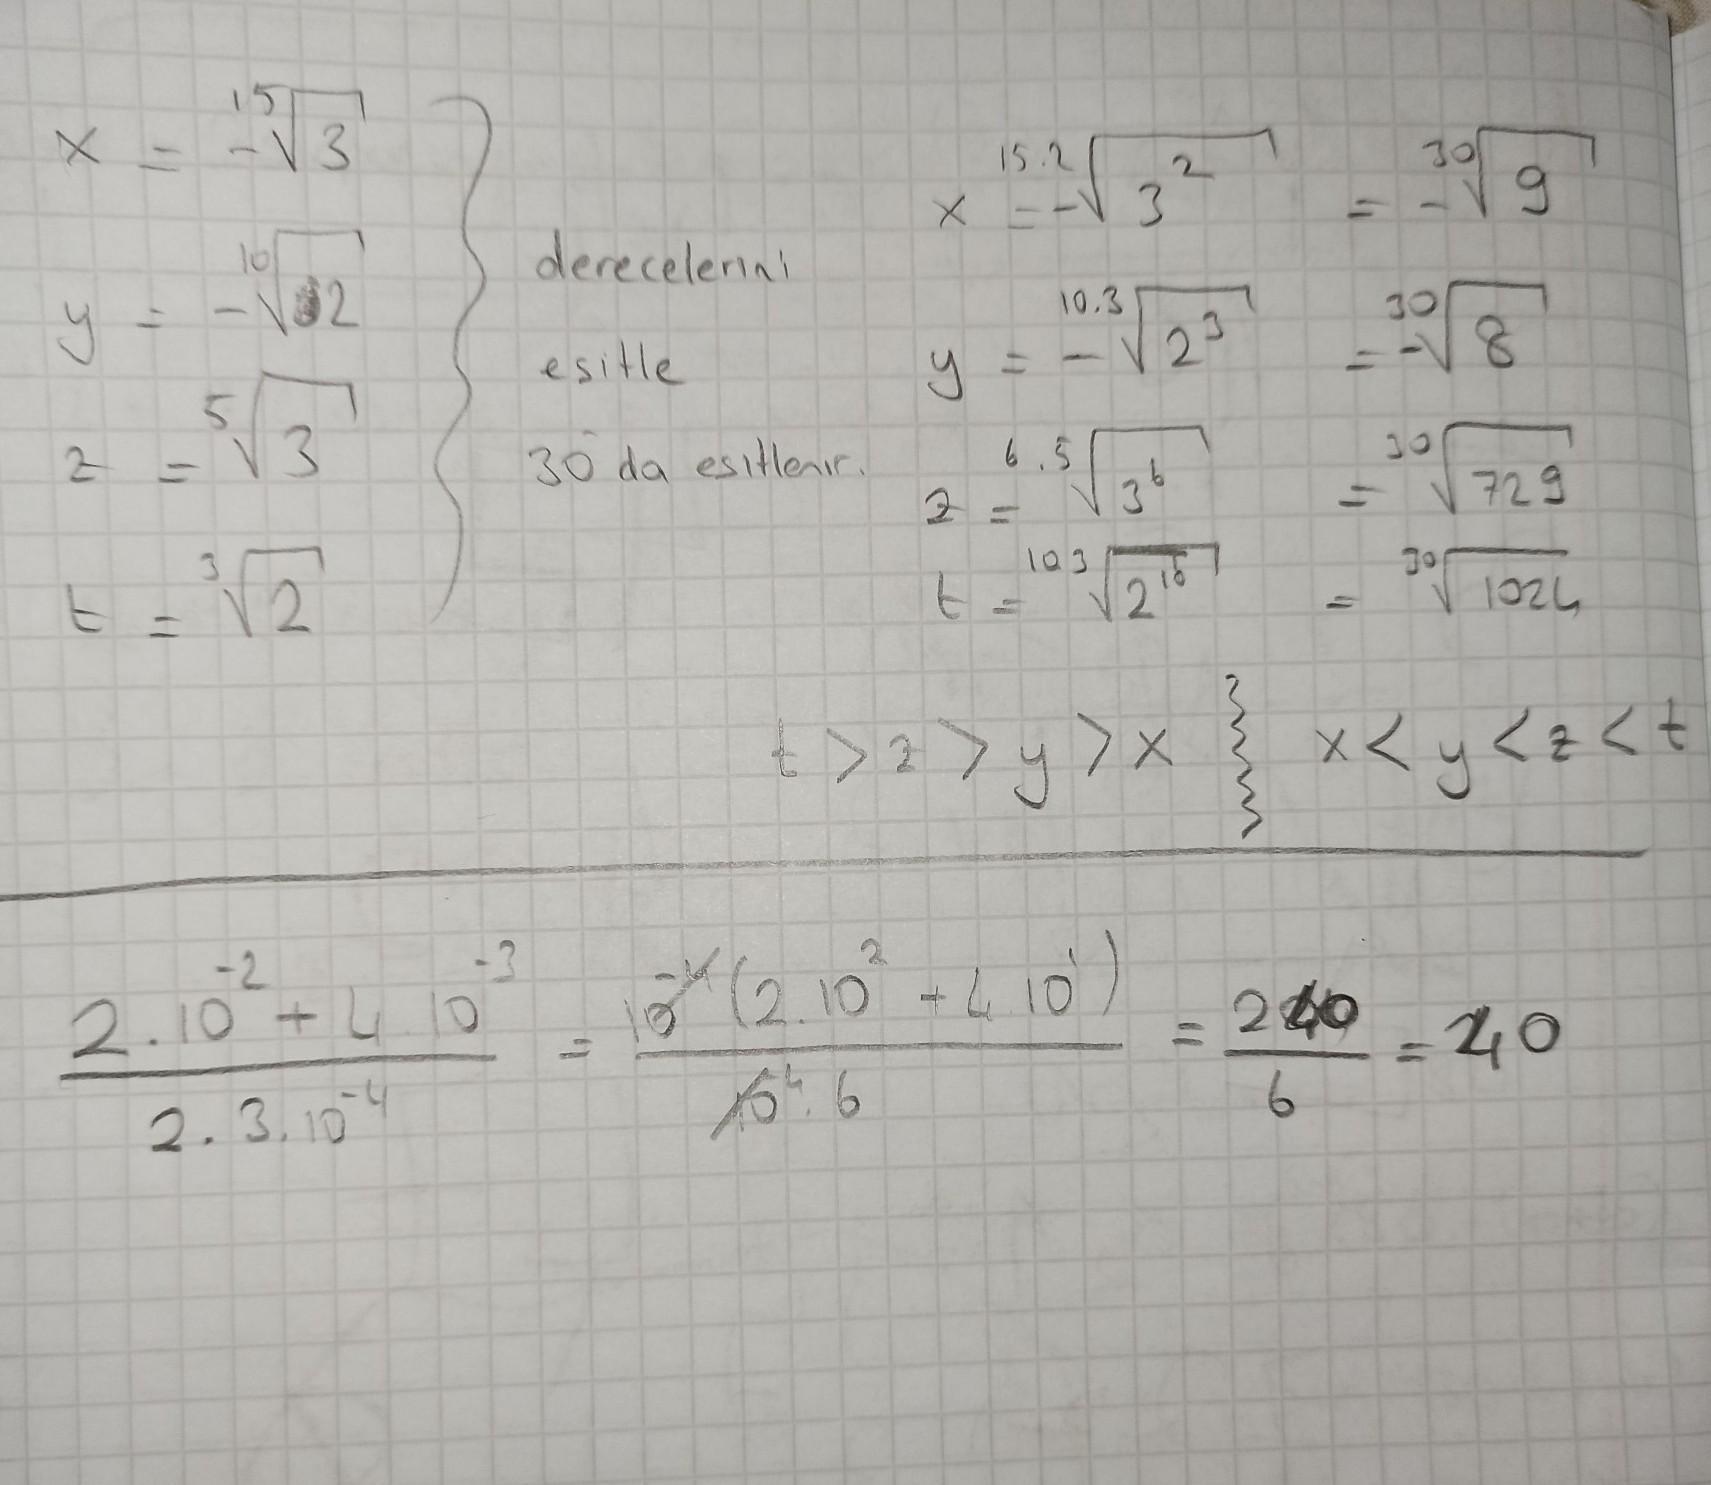 x = -¹⁵√3
y = -¹⁰√2
z = ⁵√3
t = ³√2
derecelerini
esitle
30 da esitlenir.
x = -¹⁵·²√3² = -³⁰√9
y = -¹⁰·³√2³ = -³⁰√8
z = ⁶·⁵√3⁶ = ³⁰√729
t = ¹⁰ ³√2¹⁰ = ³⁰√1024
t > z > y > x } x < y < z < t
(2.10⁻² + 4.10⁻³)/(2.3.10⁻⁴) = 10⁻⁴(2.10² + 4.10¹)/(10⁻⁴.6) = 240/6 = 40